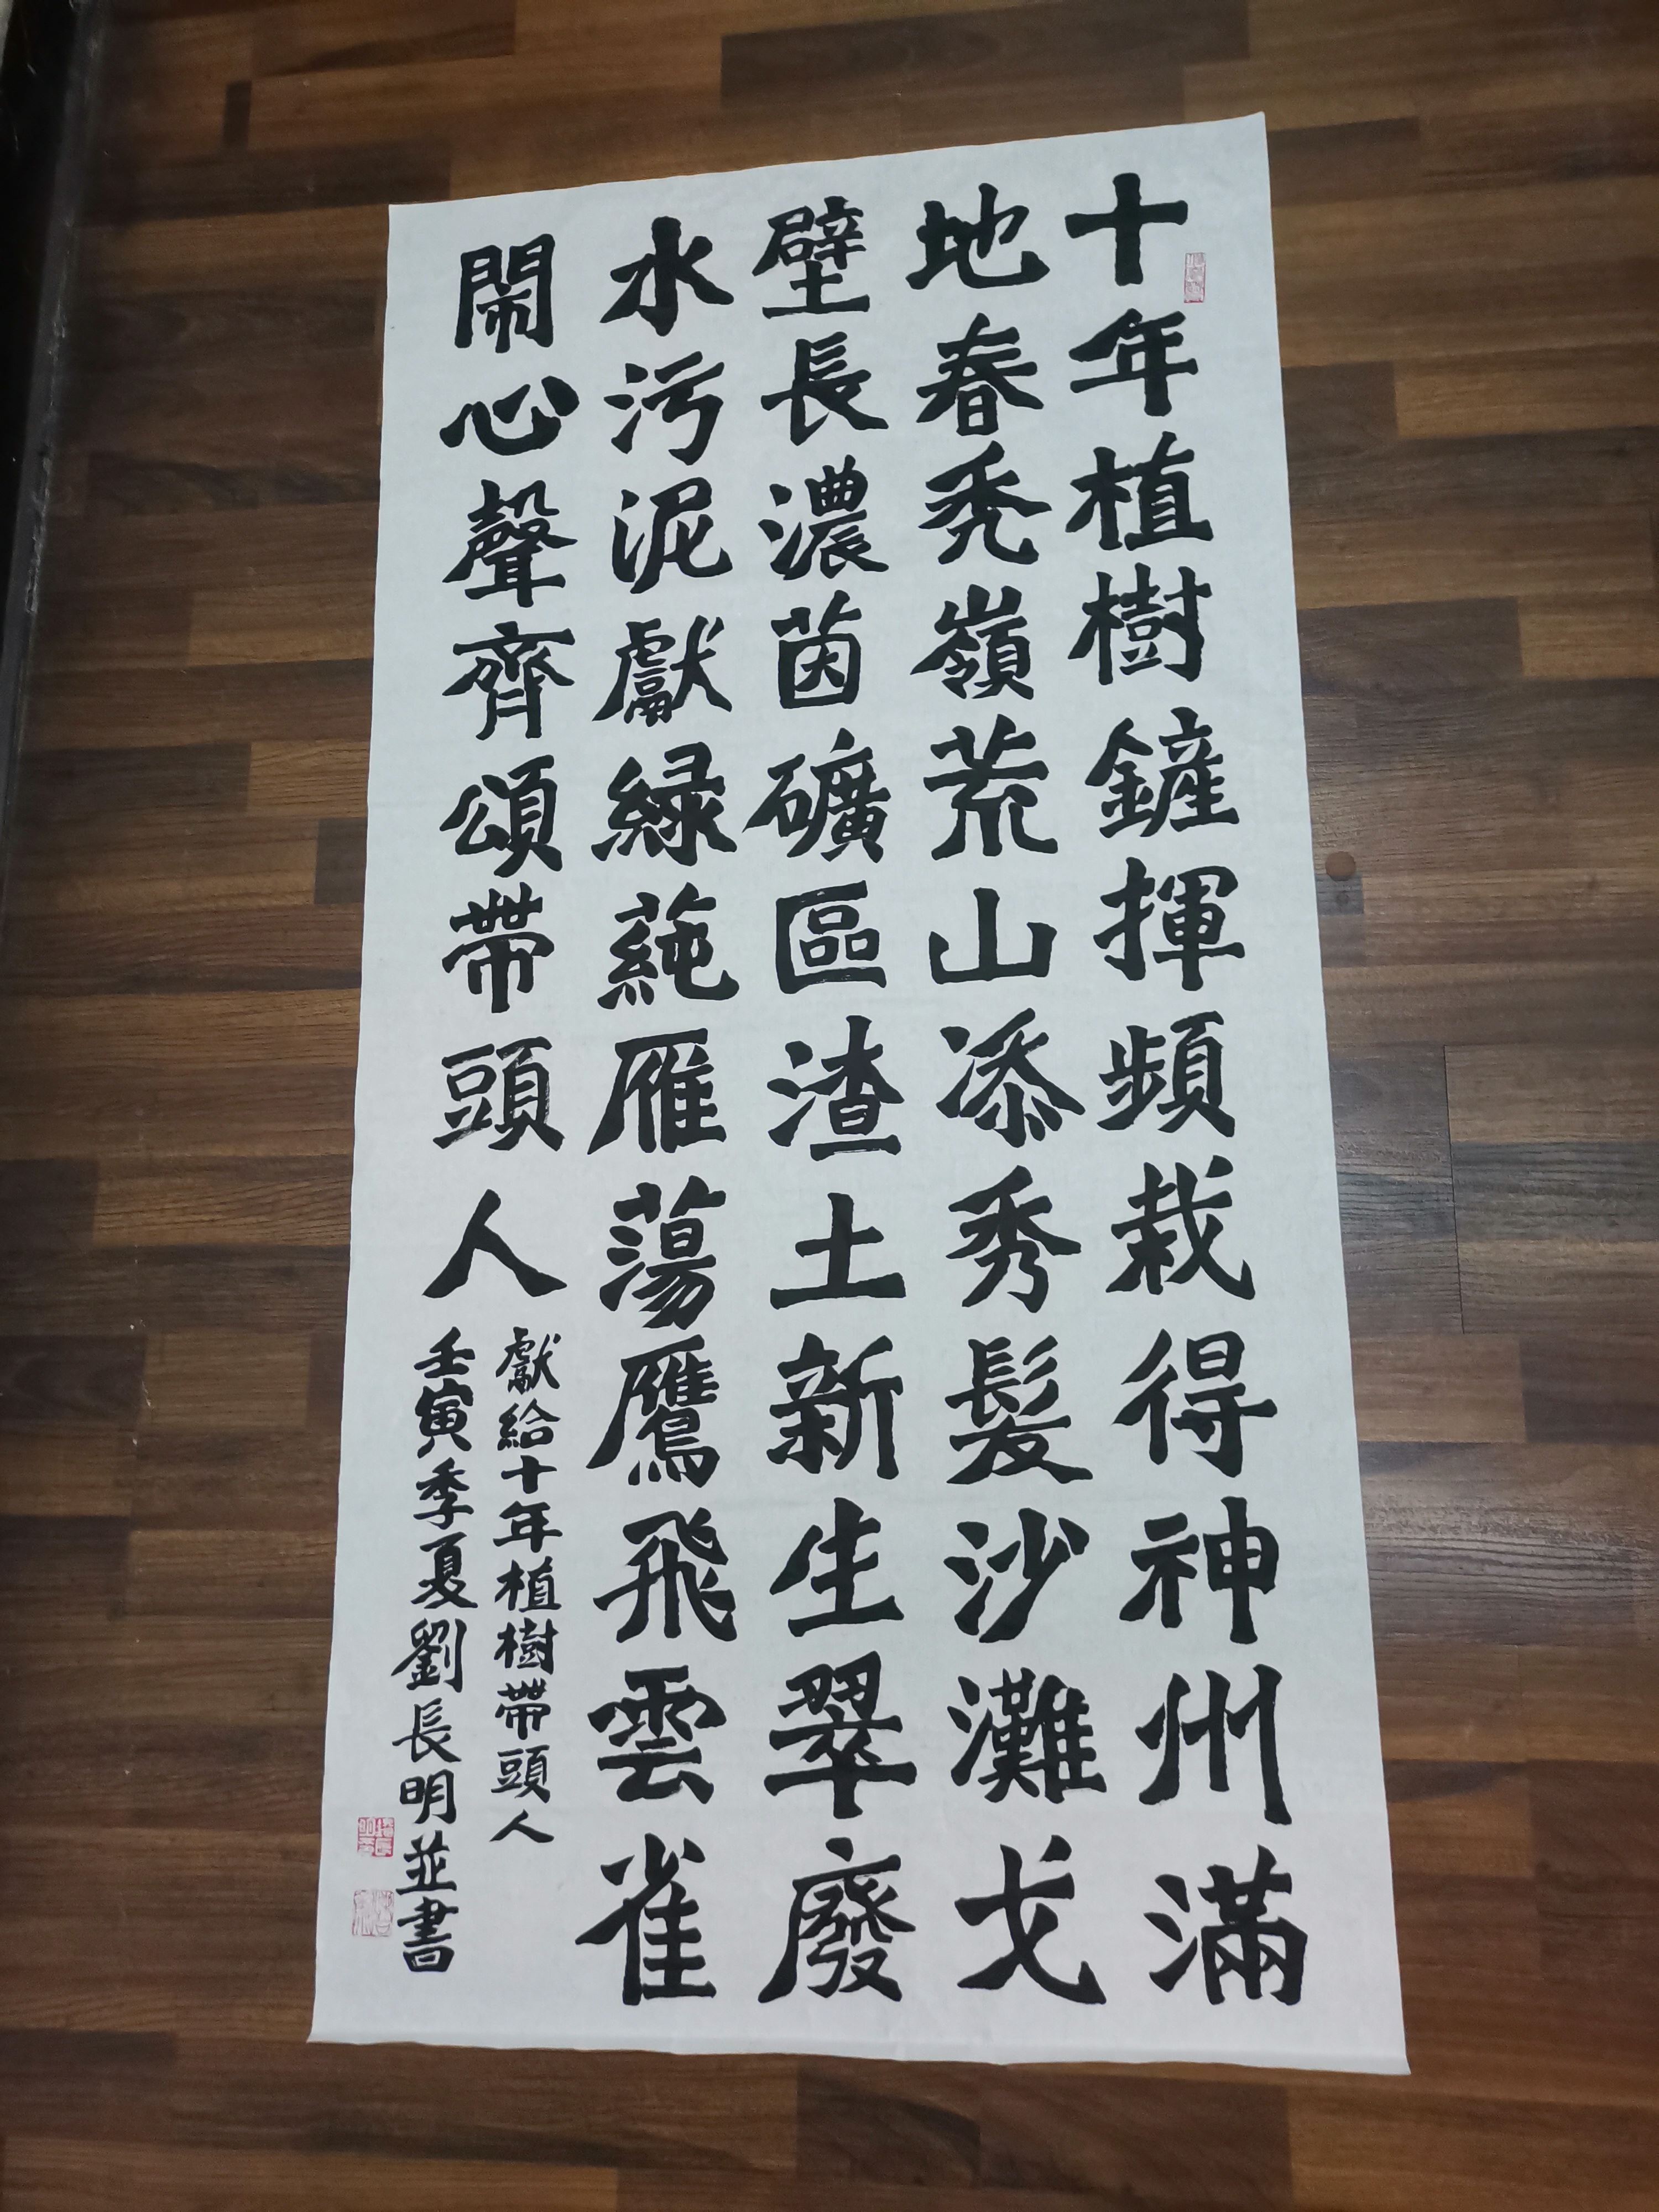 十年植樹鏟揮頻栽得神州滿
地春禿嶺荒山添秀髮沙灘戈
壁長濃茵礦區渣土新生翠廢
水污泥獻綠蒓雁蕩鷹飛雲雀
鬧心聲齊頌帶頭人
獻給十年植樹帶頭人
壬寅季夏劉長明並書